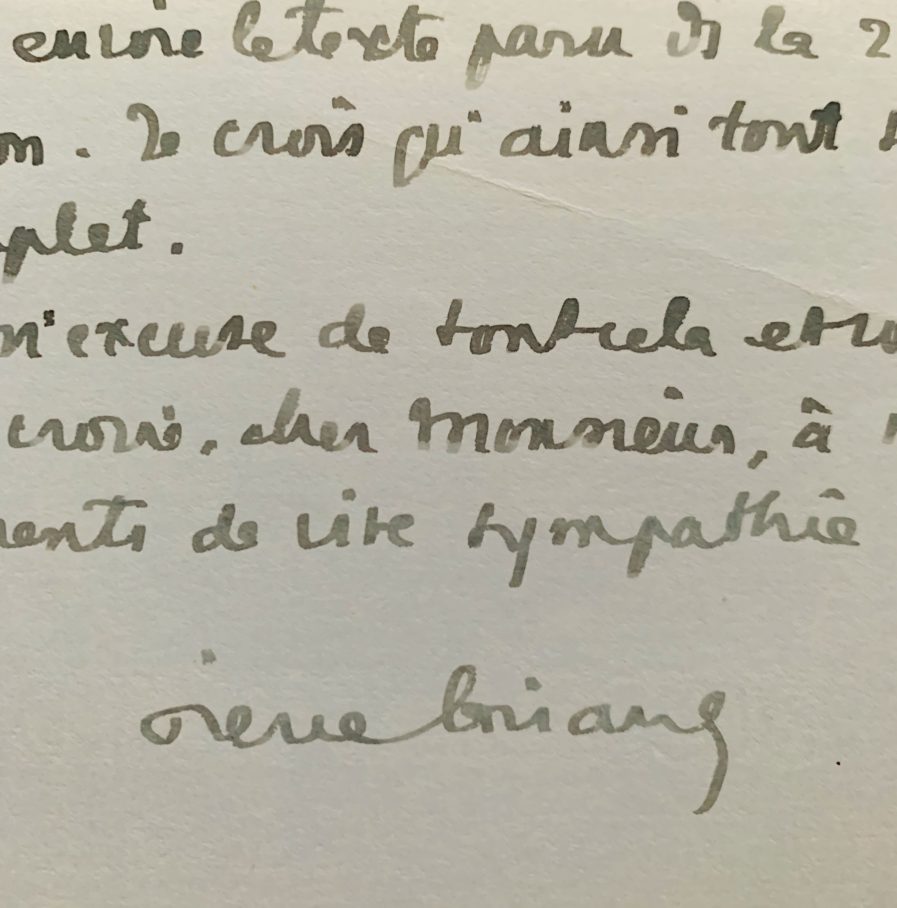 encore le texte paru ds la 2
on. Je crois qu'ainsi tout
plet.
m'excuse de tout cela et v
croire, cher Monsieur, à
ments de vive sympathie